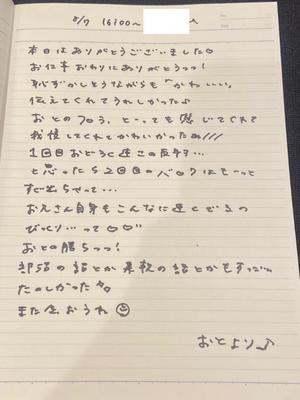 8/7 16:00~
本日はありがとうございました♡
お仕事おわりにありがとうっっ!
恥ずかしそうながらも「かわいい」
伝えてくれてうれしかった♪
おとのフロう、とーっても感じてくれて
我慢してくれてかわいかったぬ///
1回目おどろく速さの反り…
と思ったら2回目のバロクはもーっと
すぐ出らせって…
お兄さん自身もこんなに速くでるの
びっくり…って♡♡
おとの勝ちっっ!
部活の話とか柔軟の話とかもすっごい
たのしかった
また会おうね
おとより♪